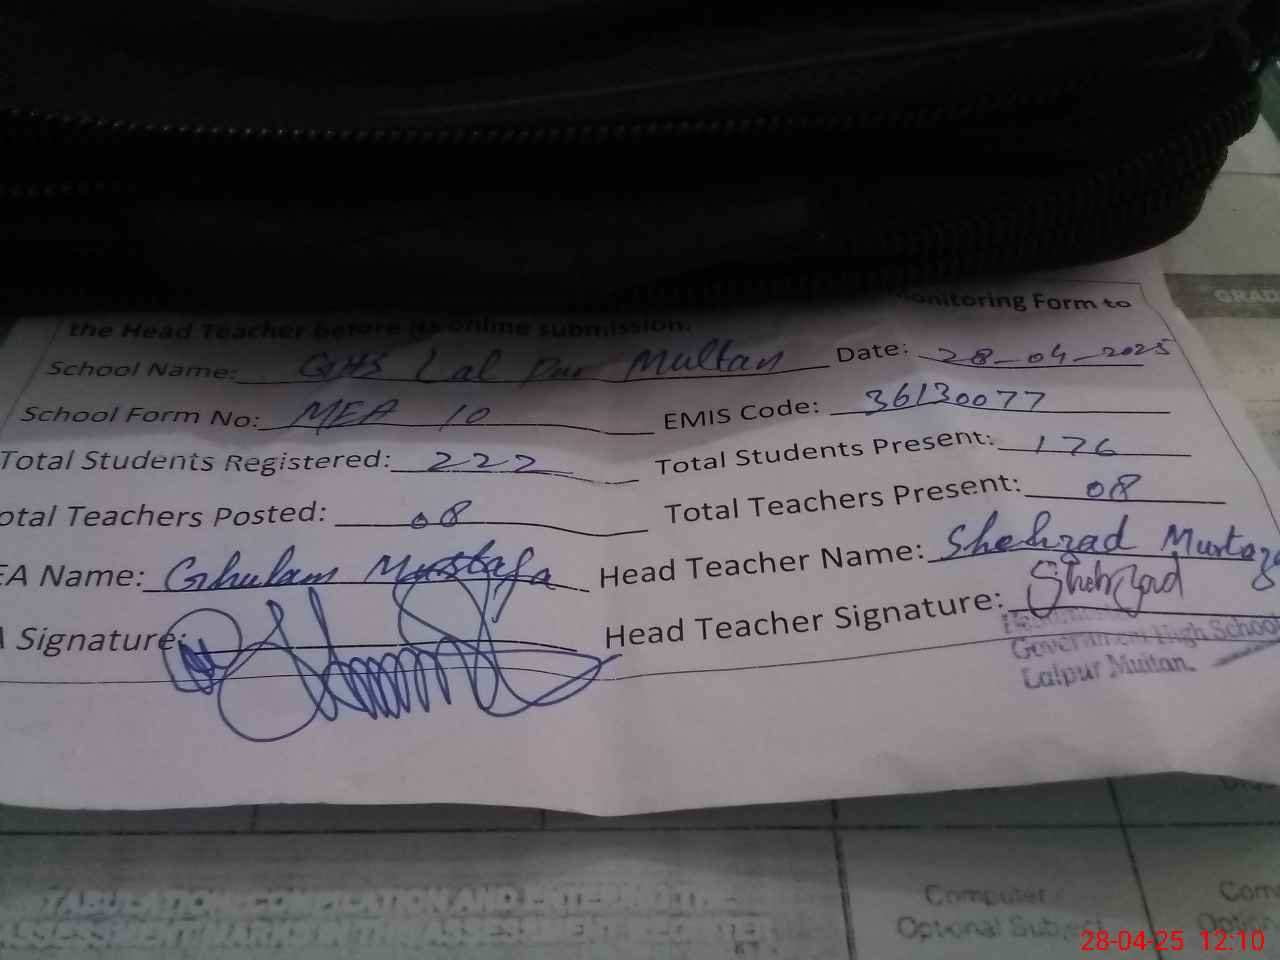 onitoring Form to
the Head Teacher before its online submission.
School Name: GHS Lal Pur Multan Date: 28-04-2025
School Form No: MEA 10 EMIS Code: 36130077
Total Students Registered: 222 Total Students Present: 176
otal Teachers Posted: 08 Total Teachers Present: 08
EA Name: Ghulam Mustafa Head Teacher Name: Shehzad Murtaza
A Signature: Head Teacher Signature: Shehzad
Government High School
Lalpur Multan
GRAD
TABULATION COMPILATION AND
ASSESSMENT MARKS IN THE ASSESSMENT REGISTER
Computer
Optional Subject
Com
Option
28-04-25 12:10